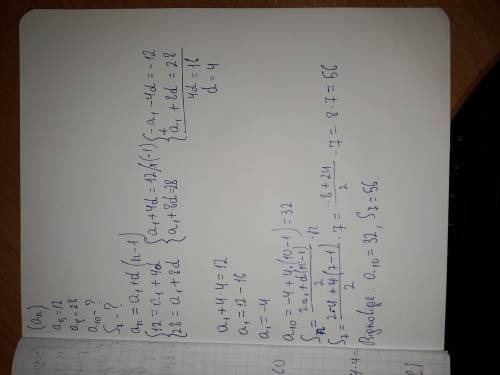 (aₙ)
a₅=12
a₉=28
a₁₀-?
S₇-?
aₙ=a₁+d(n-1)
{12=a₁+4d {a₁+4d=12/×(-1) {-a₁-4d=-12
{28=a₁+8d {a₁+8d=28 {a₁+8d=28
+
4d=16
d=4
a₁+4·4=12
a₁=12-16
a₁=-4
a₁₀=-4+4·(10-1)=32
Sₙ=\frac{2a₁+d(n-1)}{2}·n
S₇=\frac{2·-4+4(7-1)}{2}·7=\frac{-8+24}{2}·7=8·7=56
Відповідь: a₁₀=32, S₇=56.
60
7·4=